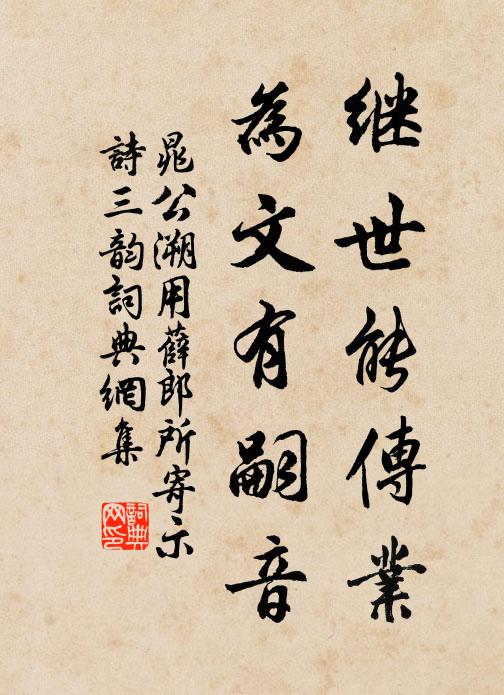 继世能傳業
為文有嗣音
晁公溯用薛郎所寄示
詩三韵詞典網集
詞典网印